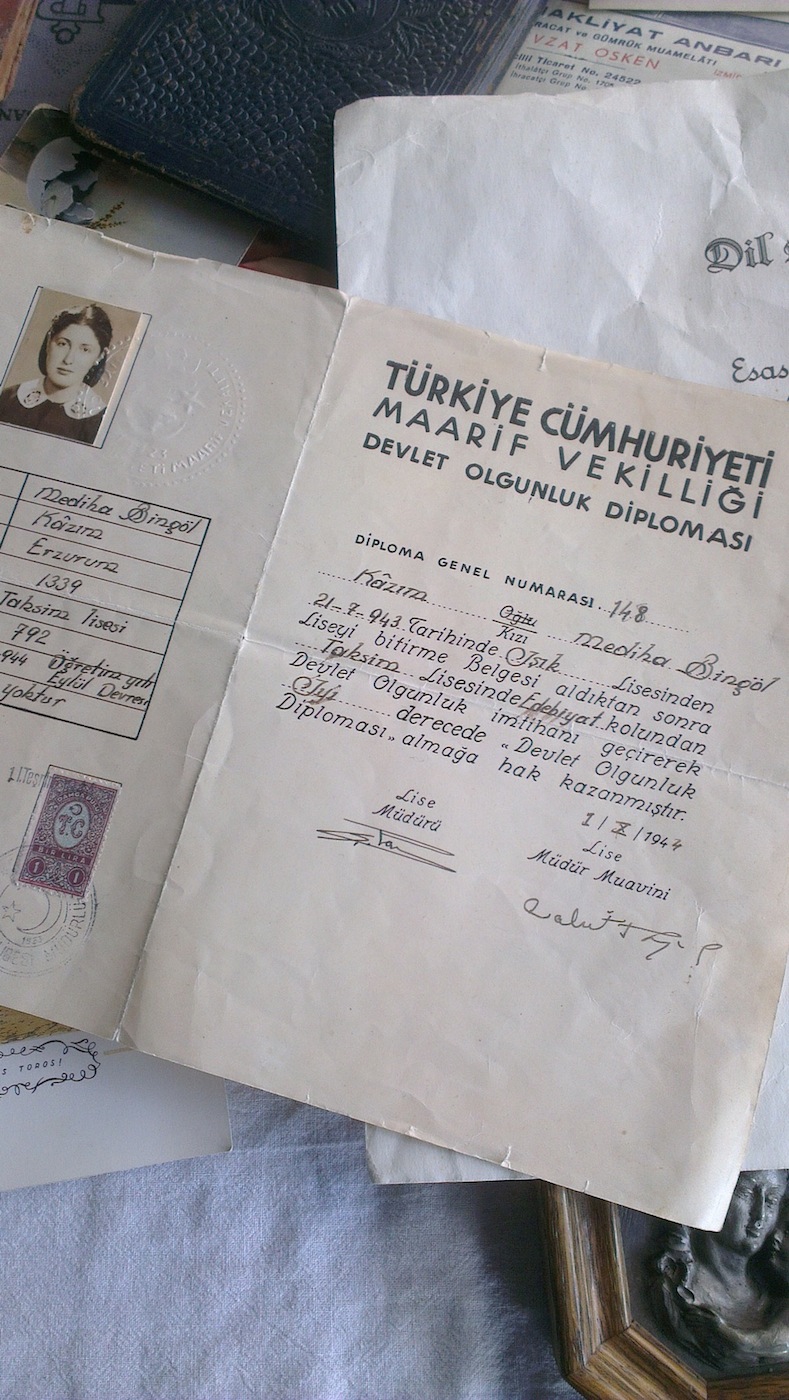 AKLİYAT ANBARI
RACAT ve GÜMRÜK MUAMELÂTI
VZAT OSKEN
İZMİR
Ticaret No. 24522
İthalâtçı Grup No.
İhracatçı Grup No.
Dil
Esas
ETİ MAARİF VEKİLLİĞİ
Mediha Bingöl
Kâzım
Erzurum
1339
Taksim lisesi
792
944 Öğretim yılı
Eylül Devresi
yoktur
T.C
BİR LİRA
1 1
1923
S TOROS!
TÜRKİYE CÜMHURİYETİ
MAARİF VEKİLLİĞİ
DEVLET OLGUNLUK DİPLOMASI
DİPLOMA GENEL NUMARASI. 148
Kâzım Oğlu Kızı Mediha Bingöl
21-7-943 Tarihinde Işık Lisesinden
Liseyi bitirme Belgesi aldıktan sonra
Taksim Lisesinde Edebiyat kolundan
Devlet Olgunluk imtihanı geçirerek
İyi derecede «Devlet Olgunluk
Diploması» almağa hak kazanmıştır.
1/X/1944
Lise
Müdürü
Lise
Müdür Muavini